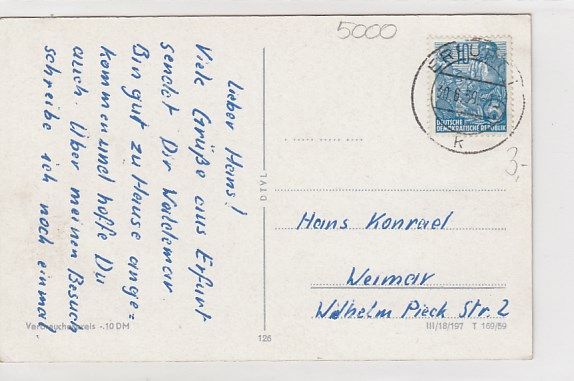 Lieber Hans!
Viele Grüße aus Erfurt
sendet Dir Waldemar.
Bin gut zu Hause ange=
kommen und hoffe Du
auch. Über meinen Besuch
schreibe ich noch einmal
5000
ERFURT
k
10
DEUTSCHE
DEMOKRATISCHE REPUBLIK
3,-
DTVL
Hans Konrad
Weimar
Wilhelm Pieck Str. 2
Verbraucherpreis -.10 DM
126
III/18/197 T 169/59